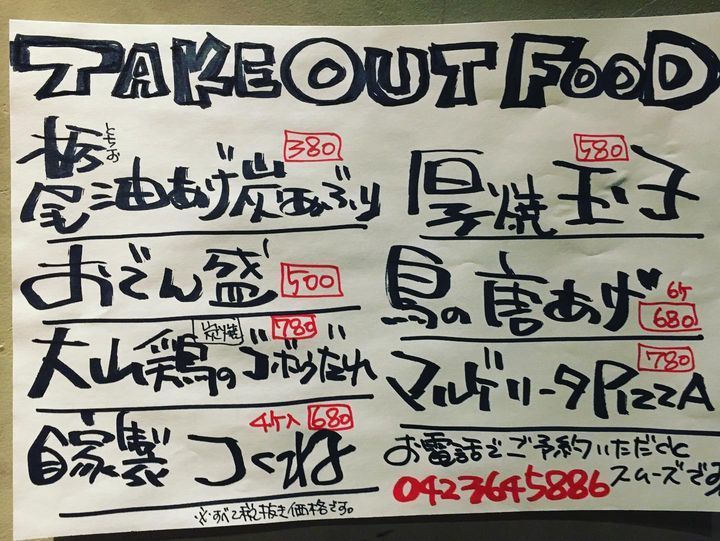 TAKE OUT FOOD
とちお
栃尾油あげ炭あぶり 380
おでん盛 500
炭焼 780
大山鶏のゴボウだれ
4ヶ入 680
自家製つくね
※すべて税抜き価格です。
580
厚焼玉子
鳥の唐あげ 6ケ 680
780
マルゲリータPizzA
お電話でご予約いただくと
スムーズです
0423645886